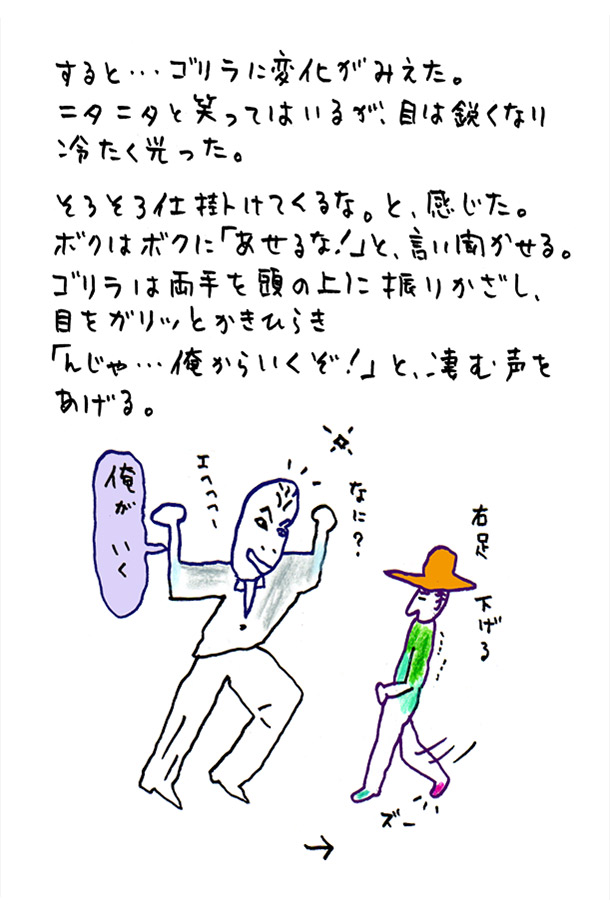 すると…ゴリラに変化がみえた。
ニタニタと笑ってはいるが、目は鋭くなり
冷たく光った。
そろそろ仕掛けてくるな。と、感じた。
ボクはボクに「あせるな!」と、言い聞かせる。
ゴリラは両手を頭の上に振りかざし、
目をガリッとかきひらき
「んじゃ…俺からいくぞ!」と、凄む声を
あげる。
俺が いく
エヘヘヘー
なに?
右足 下げる
ズー
→